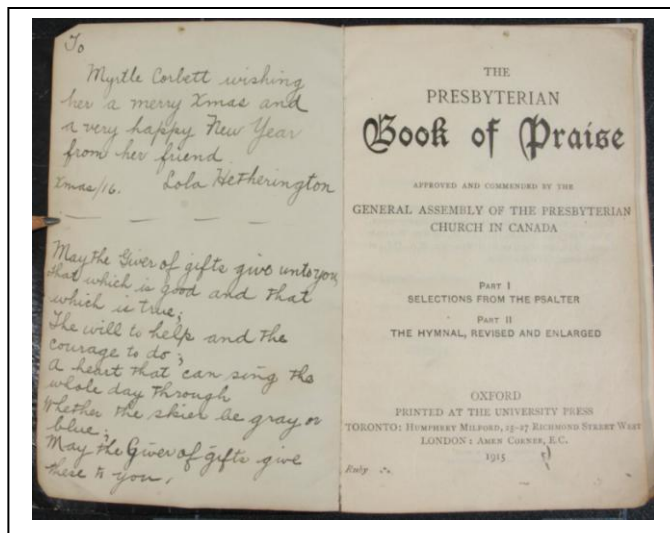 To
Myrtle Corbett wishing
her a merry Xmas and
a very happy New Year
from her friend
Xmas/16. Lola Hetherington
May the Giver of gifts give unto you
that which is good and that
which is true;
The will to help and the
courage to do;
A heart that can sing the
whole day through
Whether the skies be gray or
blue;
May the Giver of gifts give
these to you.
THE
PRESBYTERIAN
Book of Praise
APPROVED AND COMMENDED BY THE
GENERAL ASSEMBLY OF THE PRESBYTERIAN
CHURCH IN CANADA
PART I
SELECTIONS FROM THE PSALTER
PART II
THE HYMNAL, REVISED AND ENLARGED
OXFORD
PRINTED AT THE UNIVERSITY PRESS
TORONTO: HUMPHREY MILFORD, 25-27 RICHMOND STREET WEST
LONDON: AMEN CORNER, E.C.
1915
Ruby